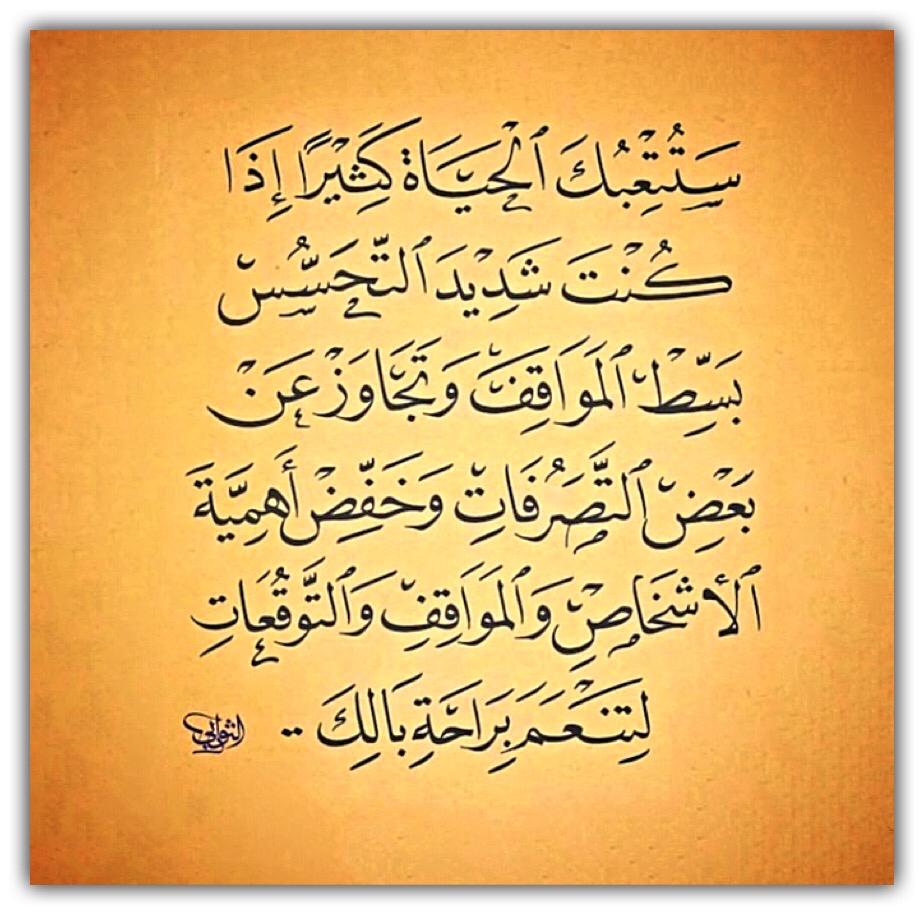 سَتُتْعِبُكَ ٱلْحَيَاةُ كَثِيْرًا إِذَا
كُنْتَ شَدِيْدَ ٱلتَّحَسُّسْ
بَسِّطْ ٱلمَوَاقِفَ وَتَجَاوَزْ عَنْ
بَعْضِ ٱلتَّصَرُفَاتِ وَخَفِّضْ أَهَمِيَّةَ
ٱلأَشْخَاصِ وَٱلمَوَاقِفِ وَٱلتَّوَقُعَاتِ
لِتَنْعَمَ بِرَاحَةِ بَالِكَ ..